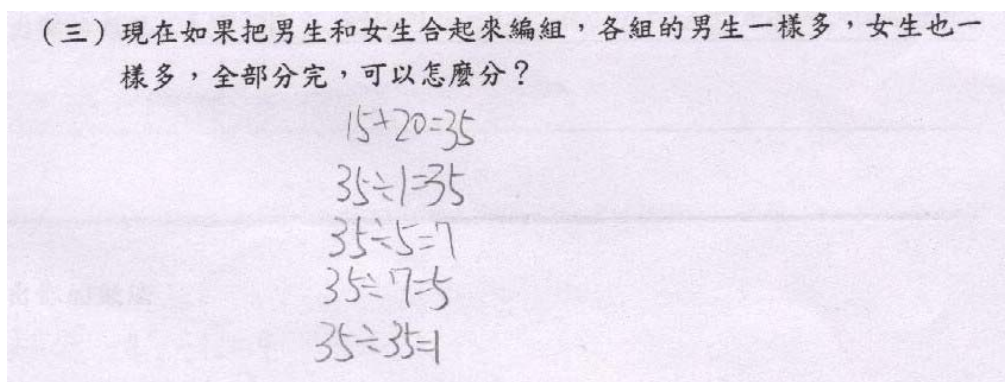 (三)現在如果把男生和女生合起來編組,各組的男生一樣多,女生也一
樣多,全部分完,可以怎麼分?
15+20=35
35÷1=35
35÷5=7
35÷7=5
35÷35=1